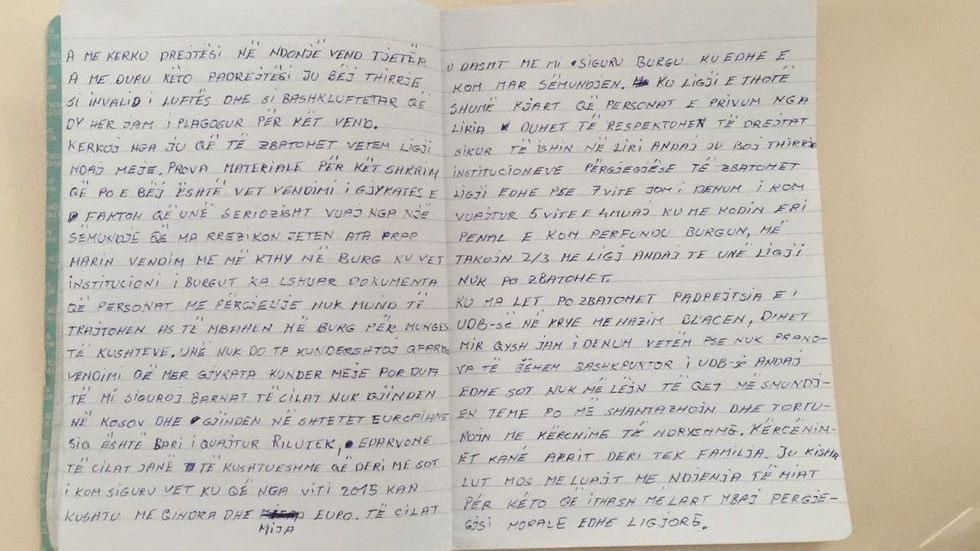 A ME KERKU DREJTËSI NË NDONJË VEND TJETËR
A ME DURU KËTO PADREJTËSI JU BËJ THIRRJE
SI INVALID I LUFTËS DHE SI BASHKLUFTETAR QË
DY HER JAM I PLAGOSUR PËR KËT VEND.
KERKOJ NGA JU QË TË ZBATOHET VETEM LIGJI
NDAJ MEJE. PROVA MATERIALE PËR KËT SHKRIM
QË PO E BËJ ËSHTË VET VENDIMI I GJYKATËS E
FAKTON QË UNË SERIOZISHT VUAJ NGA NJË
SËMUNDJE QË MA RREZIKON JETEN ATA PRAP
MARIN VENDIM ME MË KTHY NË BURG KU VET
INSTITUCIONI I BURGUT KA LSHUAR DOKUMENTA
QË PERSONAT ME PËRGJEGJE NUK MUND TË
TRAJTOHEN AS TË MBAHEN NË BURG PËR MUNGES
TË KUSHTEVE. UNË NUK DO TA KUNDËRSHTOJ QFARDO
VENDIMI QË MER GJYKATA KUNDER MEJE POR DUA
TË MI SIGUROJ BARNAT TË CILAT NUK GJINDEN
NË KOSOV DHE GJINDEN NË SHTETET EUROPIANE
SIQ ËSHTË BARI I QUAJTUR RILUTEK, EDARVONE
TË CILAT JANË TË KUSHTUESHME QË DERI ME SOT
I KOM SIGURU VET KU QË NGA VITI 2015 KAN
KUSHTU ME QINDRA DHE MIJA EURO. TË CILAT
U DASHT ME MI SIGURU BURGU KU EDHE E
KOM MAR SËMUNDJEN. KU LIGJI E THOTË
SHUMË KJART QË PERSONAT E PRIVUM NGA
LIRIA DUHET TË RESPEKTOHEN TË DREJTAT
SIKUR TË ISHIN NË LIRI ANDAJ JU BOJ THIRRJE
INSTITUCIONEVE PËRGJEGJËSE TË ZBATOHET
LIGJI EDHE PSE 7 VITE JOM I DENUM I KOM
VUAJTUR 5 VITE E 4 MUAJ KU ME KODIN E RI
PENAL E KOM PERFUNDU BURGUN, MË
TAKOJN 2/3 ME LIGJ ANDAJ TE UNË LIGJI
NUK PO ZBATOHET.
KU MA LET PO ZBATOHET PADREJTSIA E I
UDB-SË NË KRYE ME NAZIM BLACEN, DIHET
MIR QYSH JAM I DENUM VETËM PSE NUK PRANO-
VA TË BËHEM BASHKPUNTOR I UDB-SË ANDAJ
EDHE SOT NUK MË LEJN TË QET ME SMUNDJ-
EN TEME PO MË SHANTAZHOJN DHE TORTU-
ROJN ME KËRCNIME TË NDRYSHME. KËRCËNIM-
ET KANË ARRIT DERI TEK FAMILJA. JU KISHA
LUT MOS ME LUAJT ME NDJENJA TË MIAT
PËR KËTO QË ITHASH MË LART MBAJ PERGJE-
GJSI MORALE EDHE LIGJORË.